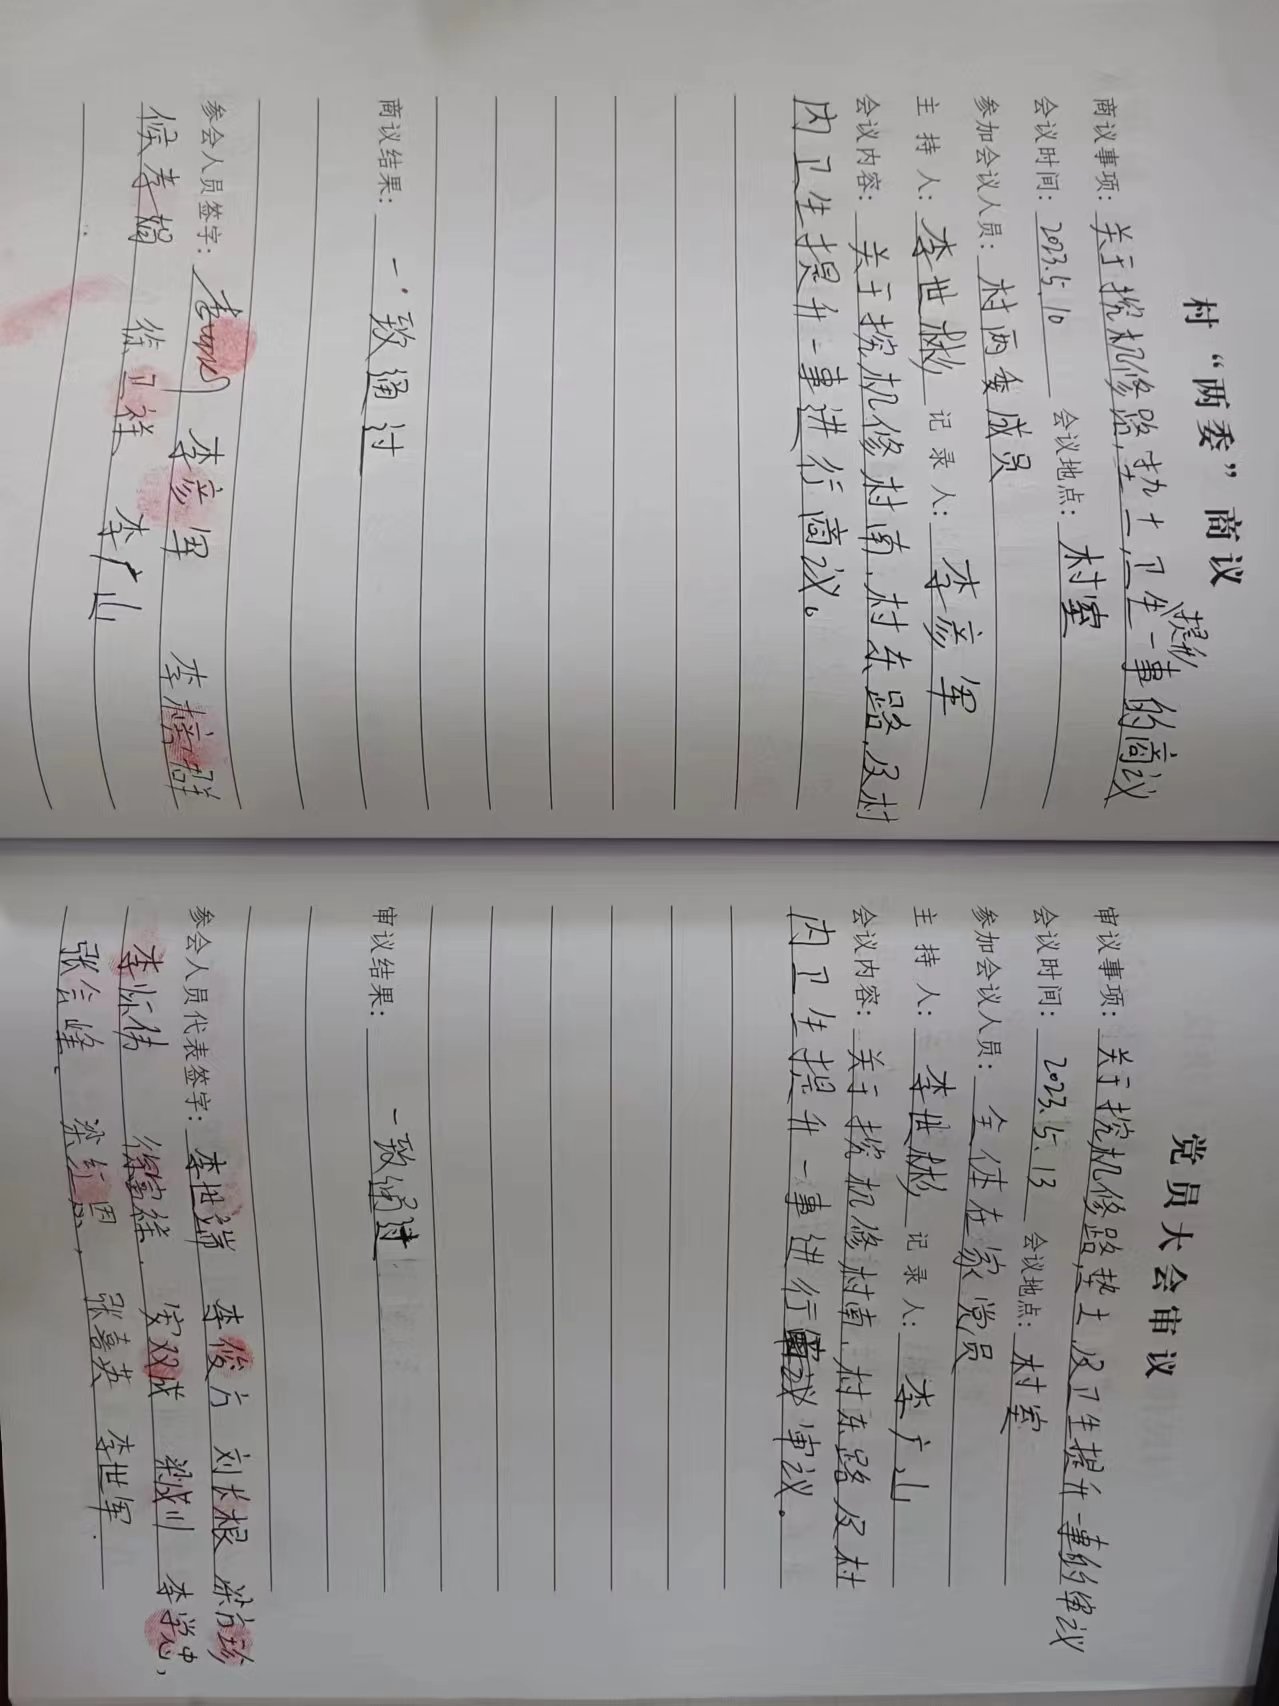 村“两委”商议
商议事项：关于挖机修路，垫土，卫生提升一事的商议
会议时间：2023.5.10 会议地点：村室
参加会议人员：村两委成员
主持人：李世彬 记录人：李彦军
会议内容：关于挖机修村南、村东路，及村
内卫生提升一事进行商议。
商议结果：一致通过
参会人员签字：李彦军 李榜群
侯孝娟 徐卫祥 李广山
党员大会审议
审议事项：关于挖机修路，垫土，及卫生提升一事的审议
会议时间：2023.5.13 会议地点：村室
参加会议人员：全体在家党员
主持人：李世彬 记录人：李广山
会议内容：关于挖机修村南、村东路及村
内卫生提升一事进行审议。
审议结果：一致通过
参会人员代表签字：李世端 李俊方 刘长根 梁方珍
李怀伟 徐富祥 安双成 梁成川 李学忠，
张会峰、梁红恩、张喜英 李世军.